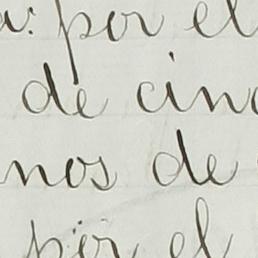 por el
de cinc
nos de
por el